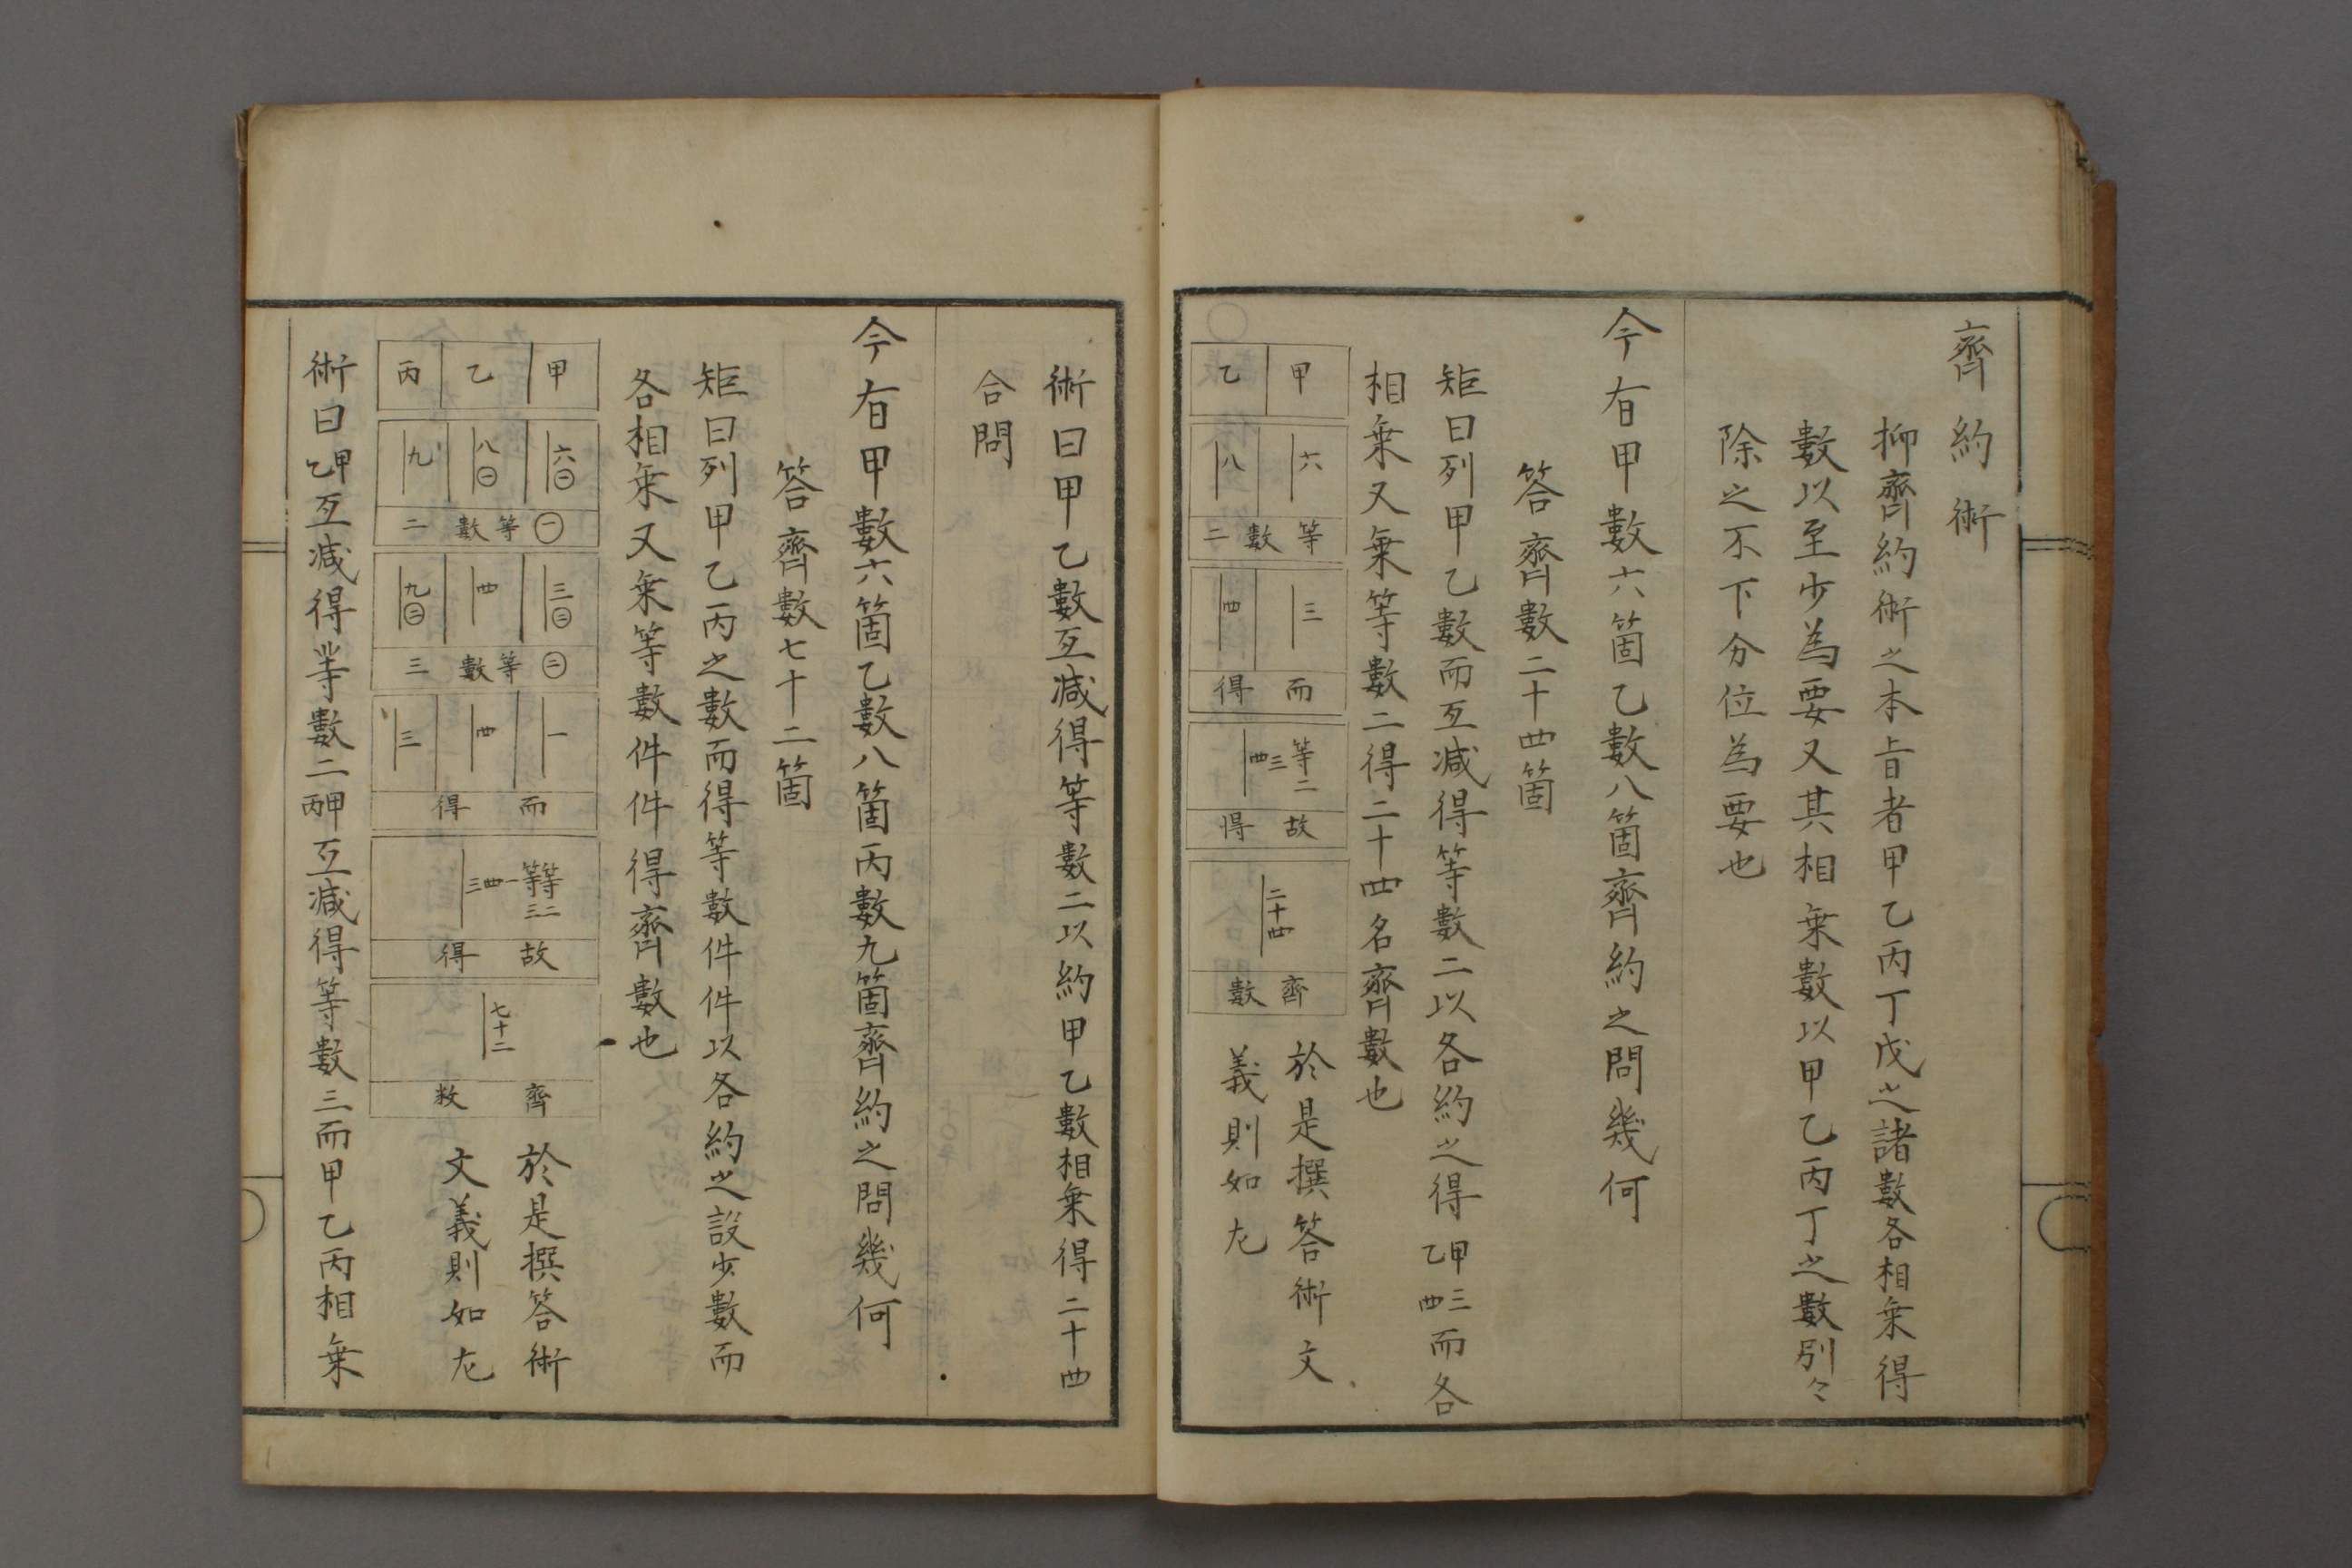 齊約術
抑齊約術之本旨者甲乙丙丁戊之諸數各相乗得
數以至少為要又其相乗數以甲乙丙丁之數別々
除之不下分位為要也
今有甲數六箇乙數八箇齊約之問幾何
答齊數二十四箇
矩曰列甲乙數而互减得等數二以各約之得甲三乙四而各
相乗又乗等數二得二十四名齊數也
甲 乙
六 八
等數二
三 四
而得
等二 三四
故得
二十四
齊數
於是撰答術文
義則如左
術曰甲乙數互减得等數二以約甲乙數相乗得二十四
合問
今有甲數六箇乙數八箇丙數九箇齊約之問幾何
答齊數七十二箇
矩曰列甲乙丙之數而得等數件件以各約之設少數而
各相乗又乗等數件件得齊數也
甲 乙 丙
六㊀ 八㊀ 九
㊀等數二
三㊁ 四 九㊁
㊁等數三
一 四 三
而得
等二 等三 一四三
故得
七十二
齊数
於是撰答術
文義則如左
術曰甲乙互减得等數二甲丙互减得等數三而甲乙丙相乗